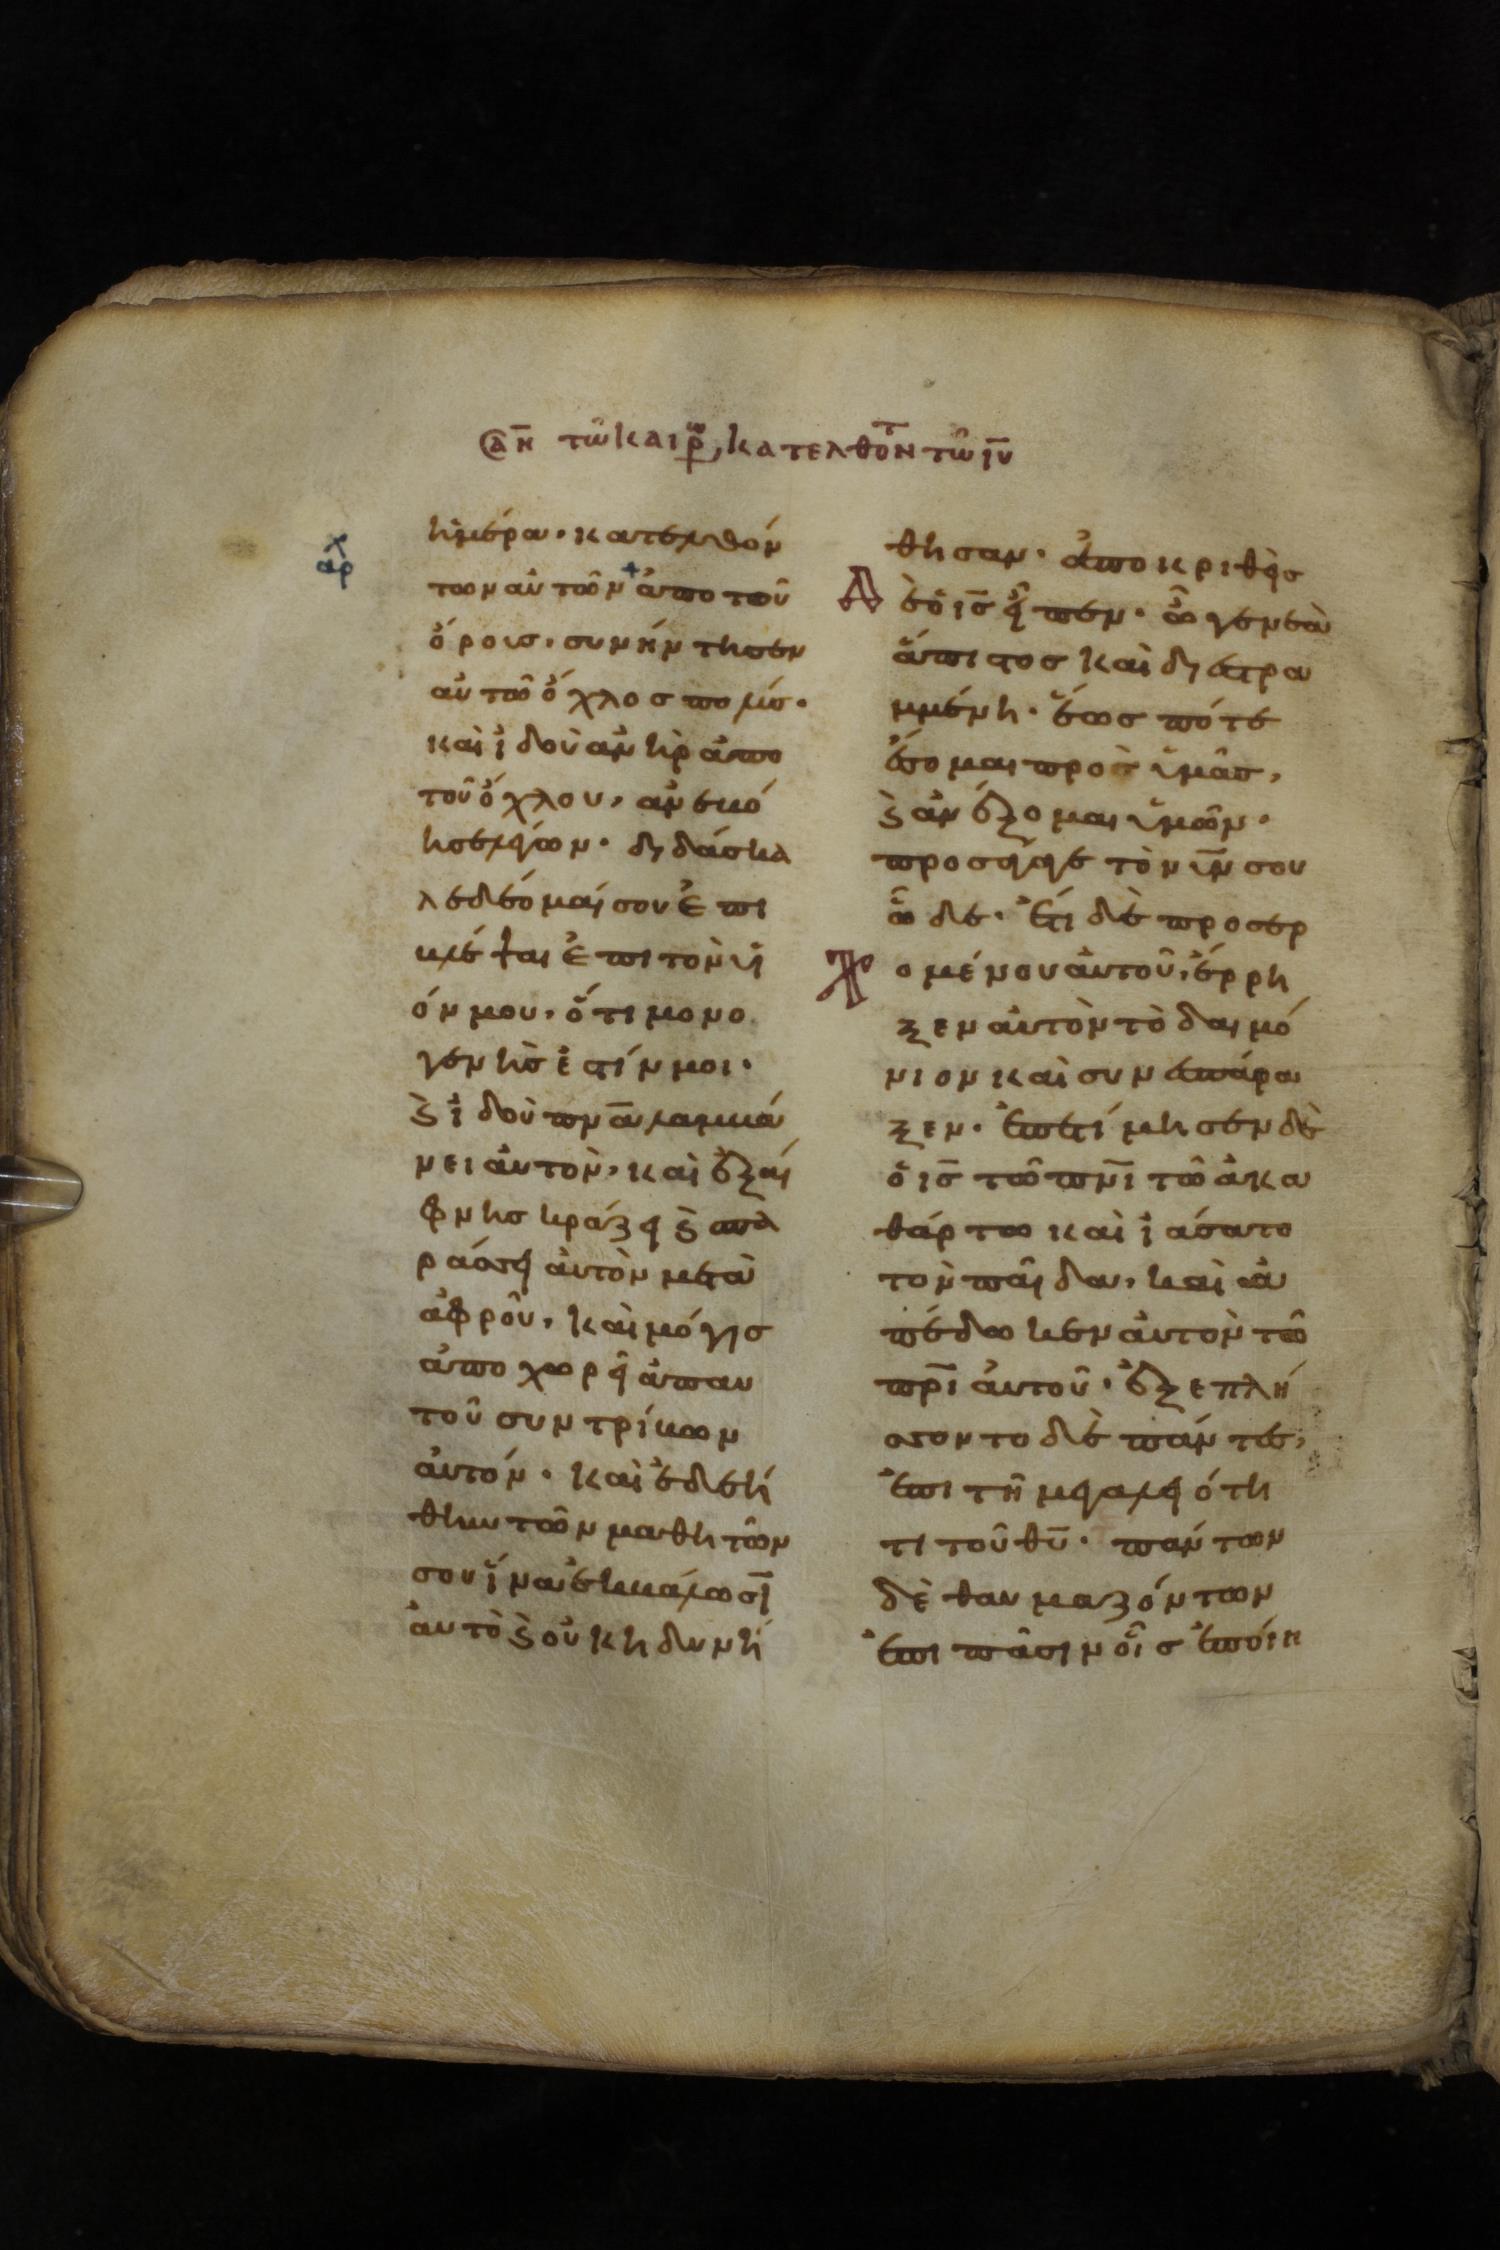 τῶ καιρῶ, κατελθόντ τῶ ιυ
αρ
ἡμέρα· κατελθόν
των αὐτῶν ἀπο τοῦ
ὄρους, συνήντησεν
αὐτῶ ὄχλος πολύς·
καὶ ἰδοὺ ἀνὴρ ἀπο
τοῦ ὄχλου, ἀνεβό
ησε λέγων· διδάσκα
λε δέομαί σου ἐπι
βλέψαι ἐπι τὸν υἱ
όν μου, ὅτι μονο
γενής ἐστίν μοι·
καὶ ἰδοὺ πνα λαμβά
νει ἀυτὸν, καὶ ἐξαί
φνης κράζει καὶ σπα
ράσσει ἀυτὸν μετὰ
ἀφροῦ, καὶ μόγις
ἀποχωρεῖ ἀπ αυ
τοῦ συντρίβων
ἀυτόν· καὶ ἐδεή
θην τῶν μαθητῶν
σου ἵνα ἐκβάλωσι
ἀυτὸ καὶ οὐκ ηδυνή
θησαν· ἀποκριθεὶς
δὲ ὁ ις εἶπεν· ὦ γενεὰ
ἄπιστος καὶ διεστρα
μμένη· ἕως πότε
ἔσομαι προς ὑμᾶς,
καὶ ἀνέξομαι ὑμῶν·
προσάγαγε τὸν υν σου
ὧδε· ἔτι δὲ προσερ
χομένου ἀυτοῦ, ἔρρη
ξεν ἀυτὸν τὸ δαιμό
νιον καὶ συνεσπάρα
ξεν· ἐπετίμησεν δὲ
ὁ ις τῶ πνι τῶ ἀκα
θάρτω καὶ ἰάσατο
τὸν παῖδα, καὶ ἀ
πέδωκεν ἀυτὸν τῶ
πρι ἀυτοῦ· ἐξεπλή
σσοντο δὲ πάντες,
ἐπι τῆ μεγαλειότη
τι τοῦ θυ· πάντων
δὲ θαυμαζόντων
ἐπι πᾶσιν οἷς ἐποίη